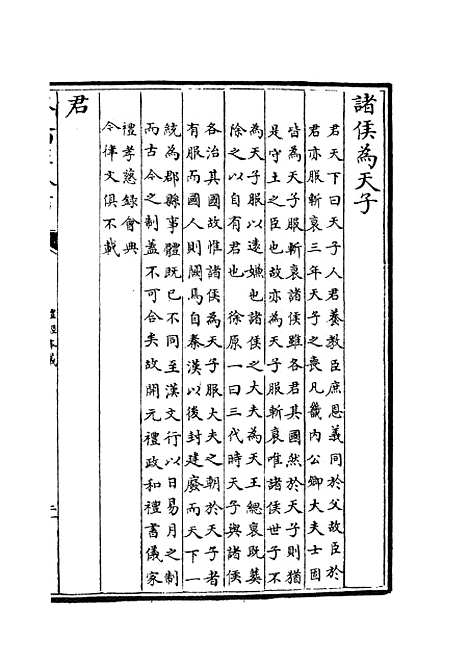 諸侯為天子
君天下曰天子人君養教臣庶恩義同於父故臣於
君亦服斬衰三年天子之喪凡畿內公卿大夫士固
皆為天子服斬衰諸侯雖各君其國然於天子則猶
是守土之臣也故亦為天子服斬衰唯諸侯世子不
為天子服以遠嫌也諸侯之大夫為天王緦衰既葬
除之以自有君也　徐原一曰三代時天子與諸侯
各治其國故惟諸侯為天子服大夫之朝於天子者
有服而國人則闕焉自秦漢以後封建廢而天下一
統為郡縣事體既已不同至漢文行以日易月之制
而古今之制蓋不可合矣故開元禮政和禮書儀家
禮孝慈錄會典
今律文俱不載
君